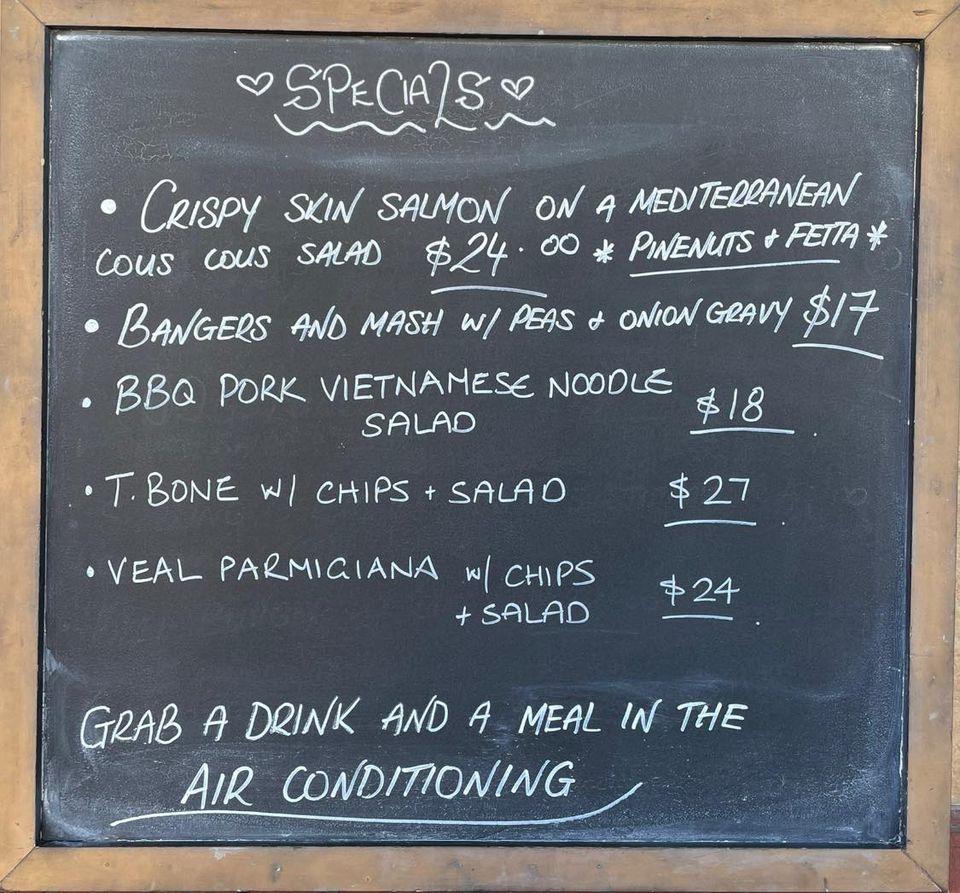 ♡ SPECIALS ♡
• CRISPY SKIN SALMON ON A MEDITERRANEAN
COUS COUS SALAD $24.00 * PINENUTS + FETTA *
• BANGERS AND MASH W/ PEAS + ONION GRAVY $17
• BBQ PORK VIETNAMESE NOODLE
SALAD $18.
• T.BONE W/ CHIPS + SALAD $27.
• VEAL PARMIGIANA W/ CHIPS
+ SALAD $24.
GRAB A DRINK AND A MEAL IN THE
AIR CONDITIONING